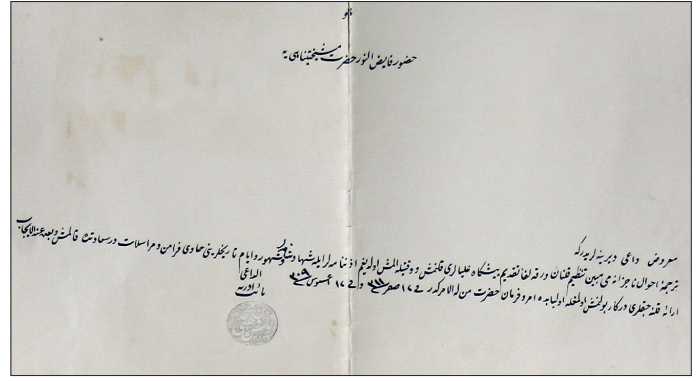 هو
حضور فايض النور حضرت مشيختپناهی يه
معروض داعی ديرينه لريدركه
ترجمهٔ احوال ناچيزانه می مبين تنظيم قلنان ورقه لفا تقديم پيشكاه عليالری قلنمش و وقتيله المش اولديغم اذننامه لر ايله شهادتنامه لر و شهور و ايام تاريخلرينی حاوی فرامين و مراسلات درسعادتده قالمش و بعده عند الايجاب
ارائه قلنه جقلری دركار بولنمش اولمغله اولبابده امر و فرمان حضرت من له الامركدر فی ١٧ صفر سنه ٣١١ و فی ١٧ اغستوس سنه ٣٠٩
الداعی